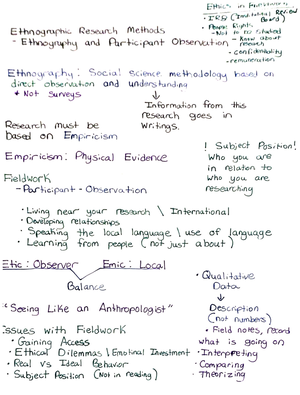 Ethnographic Research Methods
- Ethnography and Participant Observation
Ethics in Fieldwork
• IRB (Institutional Review Board)
• People Rights
- Not to be
- Know about research
- confidentiality
- remuneration
Ethnography: Social science methodology based on
direct observation and understanding
* Not surveys
↓
Information from this
research goes in
writings.
Research must be
based on Empiricism
Empiricism: Physical Evidence
! Subject Position!
Who you are
in relation to
who you are
researching
Fieldwork
- Participant - Observation
• Living near your research \ International
• Developing relationships
• Speaking the local language \ use of language
• Learning from people (not just about)
Etic: Observer Emic: Local
Balance
"Seeing Like an Anthropologist"
Issues with Fieldwork
• Gaining Access
• Ethical Dilemmas \ Emotional Investment
• Real vs Ideal Behavior
• Subject Position (Not in reading)
• Qualitative
Data
↓
Description
(not numbers)
• Field notes, record
what is going on
• Interpreting
• Comparing
• Theorizing